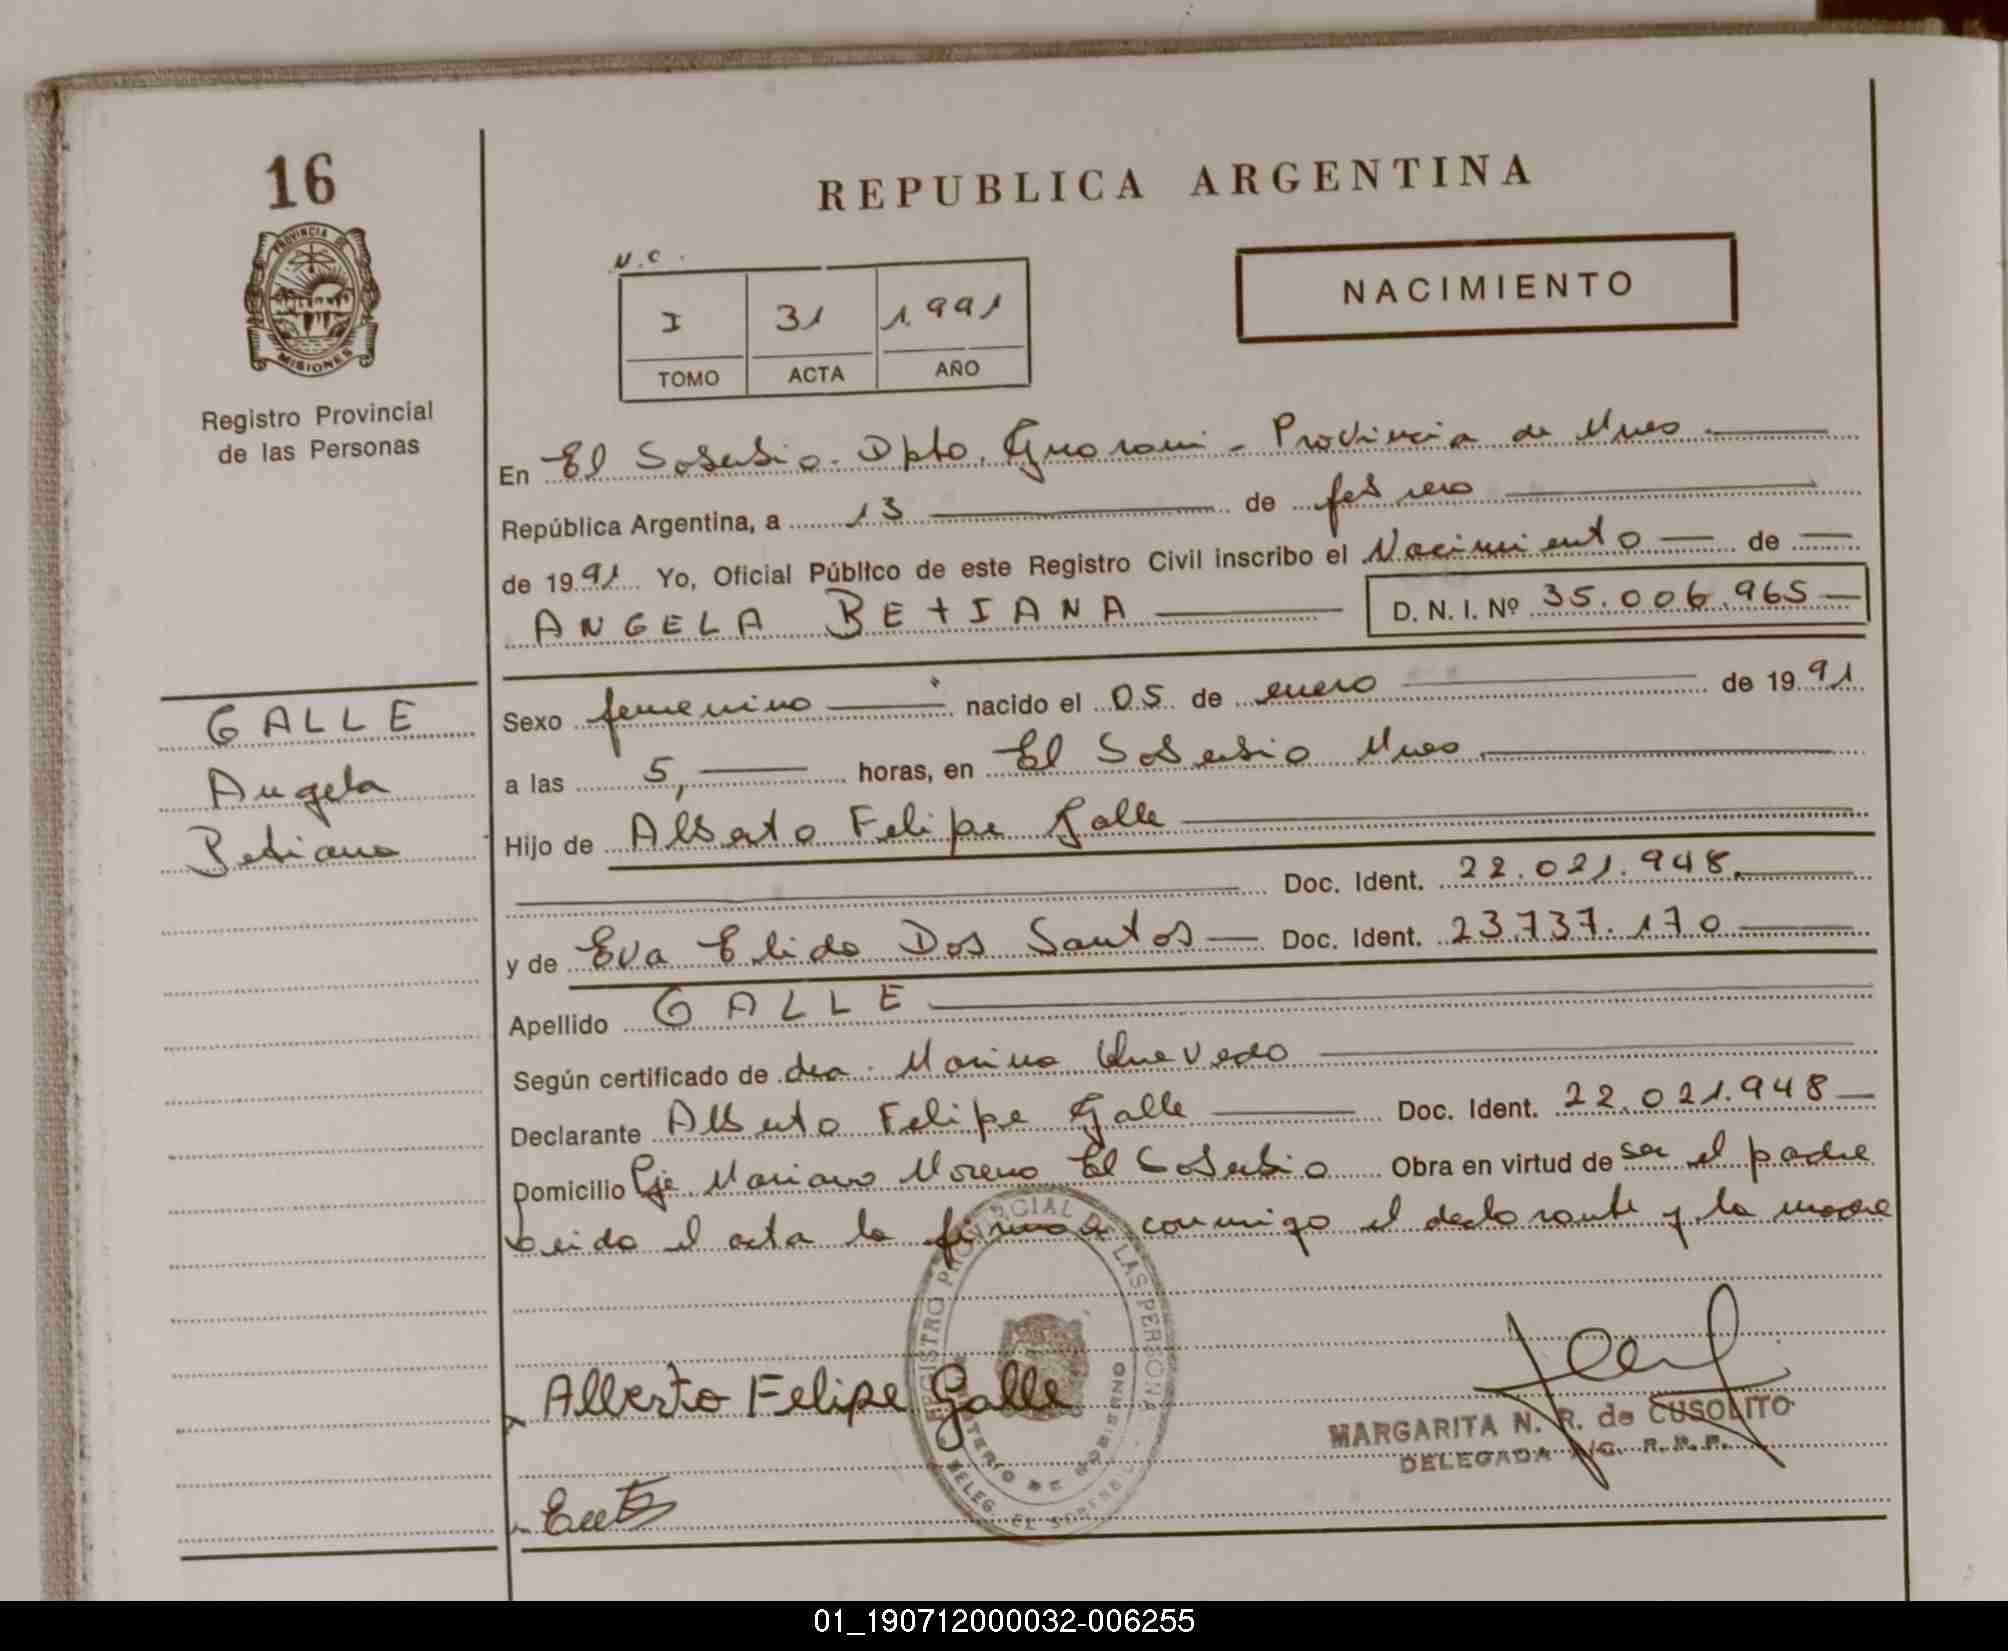 16
PROVINCIA DE
MISIONES
Registro Provincial
de las Personas
REPUBLICA ARGENTINA
N.C.
I 31 1.991
TOMO ACTA AÑO
NACIMIENTO
En El Soberbio. Dpto. Guarani - Provincia de Mnes
República Argentina, a 13 de febrero
de 1991 Yo, Oficial Público de este Registro Civil inscribo el Nacimiento de
ANGELA BETIANA D. N. I. Nº 35.006.965
GALLE
Angela
Betiana
Sexo femenino nacido el 05 de enero de 1991
a las 5, horas, en El Soberbio Mnes
Hijo de Alberto Felipe Galle
Doc. Ident. 22.021.948.
y de Eva Elida Dos Santos Doc. Ident. 23.737.170
Apellido GALLE
Según certificado de dra. Marina Quevedo
Declarante Alberto Felipe Galle Doc. Ident. 22.021.948
Domicilio Pje Mariano Moreno El Soberbio Obra en virtud de ser el padre
Leida el acta la firman conmigo el declarante y la madre
REGISTRO PROVINCIAL DE LAS PERSONAS
MINISTERIO DE GOBIERNO
DELEG. EL SOBERBIO
Alberto Felipe Galle
MARGARITA N. R. de CUSOLITO
DELEGADA A/C. R.P.P.
01_190712000032-006255